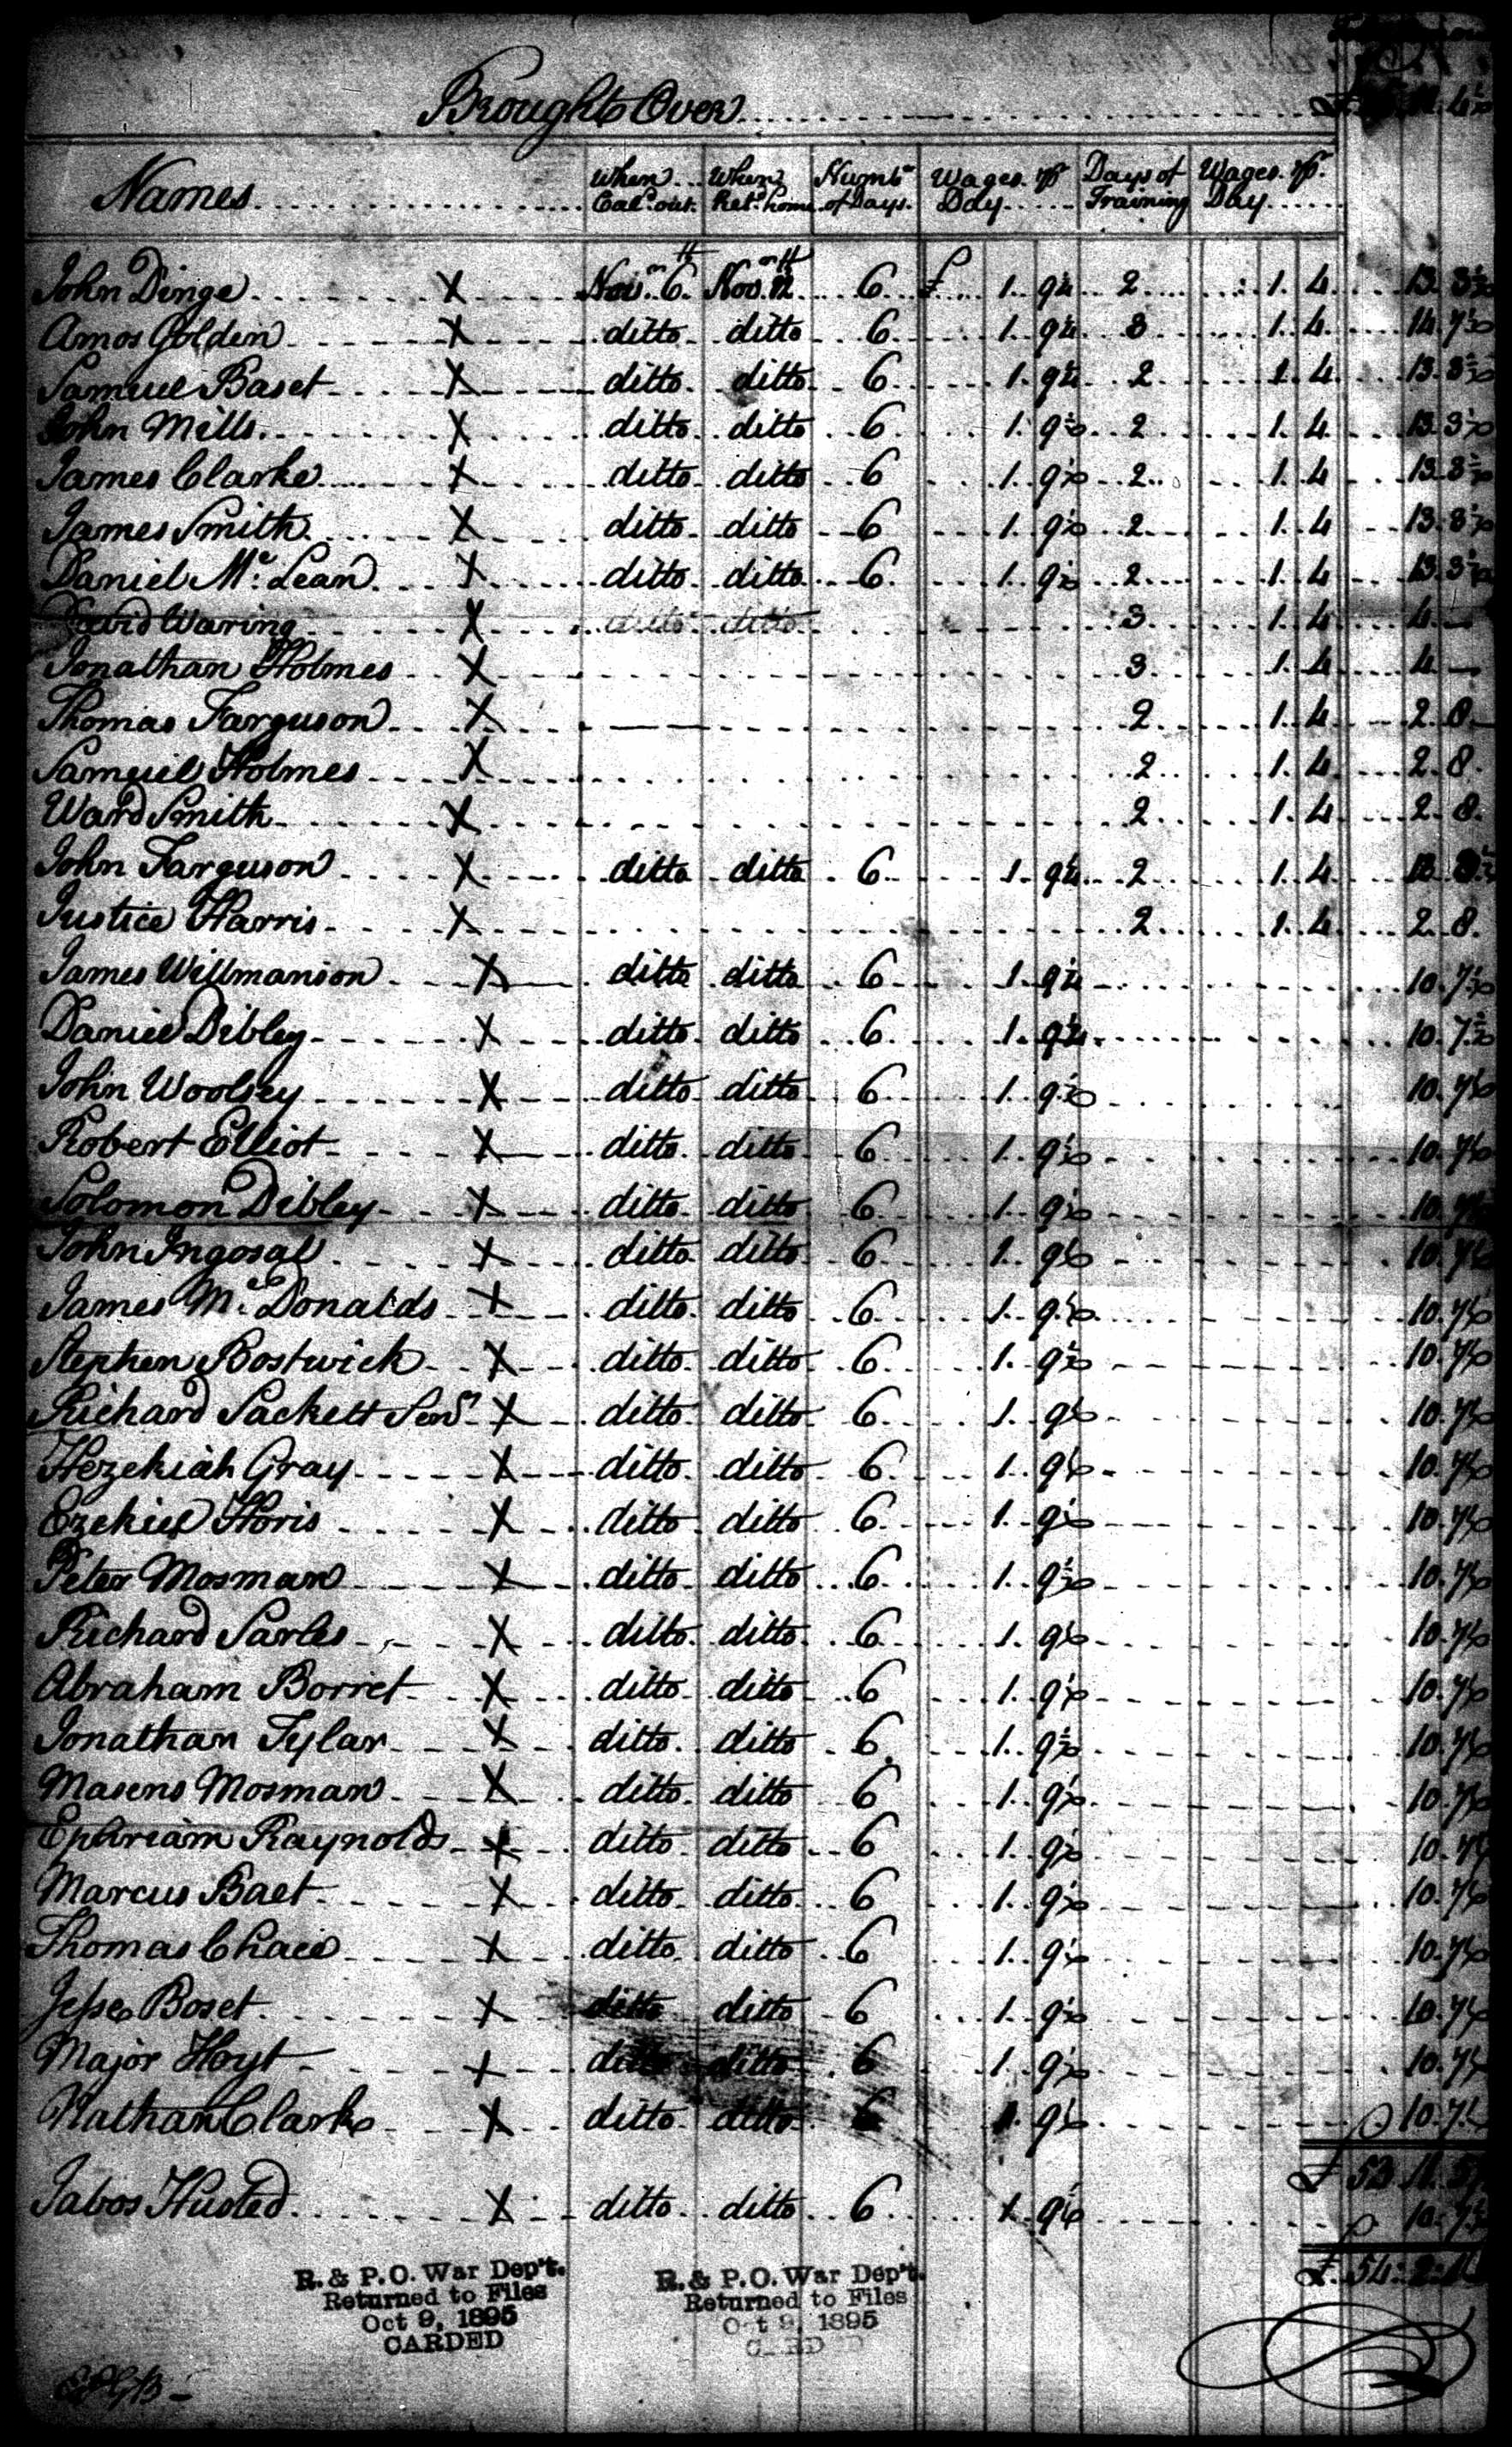 Brought Over
Names When Cal.d out. When Ret.d home Numb.r of Days. Wages. p.r Day Days of Training Wages. p.r Day
John Dinge X Nov.m 6.th Nov.m 12th 6 £ 1. 9¼ 2 1. 4 13. 3½
Amos Golden X ditto ditto 6 1. 9¼ 3 1. 4 14. 7½
Samuel Baset X ditto ditto 6 1. 9¼ 2 1. 4 13. 3½
John Mills X ditto ditto 6 1. 9½ 2 1. 4 13. 3½
James Clarke X ditto ditto 6 1. 9½ 2 1. 4 13. 3½
James Smith X ditto ditto 6 1. 9½ 2 1. 4 13. 3½
Daniel Mc. Lean X ditto ditto 6 1. 9½ 2 1. 4 13. 3½
David Waring X ditto ditto 3 1. 4 4 —
Jonathan Holmes X 3 1. 4 4 —
Thomas Farguson X 2 1. 4 2. 8
Samuel Holmes X 2 1. 4 2. 8
Ward Smith X 2 1. 4 2. 8
John Farguson X ditto ditto 6 1. 9¼ 2 1. 4 13. 3½
Justice Harris X 2 1. 4 2. 8
James Willmanson X ditto ditto 6 1. 9¼ 10. 7½
Daniel Dibley X ditto ditto 6 1. 9¼ 10. 7½
John Woolsey X ditto ditto 6 1. 9½ 10. 7½
Robert Elliot X ditto ditto 6 1. 9½ 10. 7½
Solomon Dibley X ditto ditto 6 1. 9½ 10. 7½
John Ingosal X ditto ditto 6 1. 9½ 10. 7½
James Mc. Donalds X ditto ditto 6 1. 9½ 10. 7½
Stephen Bostwick X ditto ditto 6 1. 9½ 10. 7½
Richard Sackett Senr X ditto ditto 6 1. 9½ 10. 7½
Hezekiah Gray X ditto ditto 6 1. 9½ 10. 7½
Ezekiel Horis X ditto ditto 6 1. 9½ 10. 7½
Peter Mosman X ditto ditto 6 1. 9½ 10. 7½
Richard Sarles X ditto ditto 6 1. 9½ 10. 7½
Abraham Borret X ditto ditto 6 1. 9½ 10. 7½
Jonathan Tylar X ditto ditto 6 1. 9½ 10. 7½
Masens Mosman X ditto ditto 6 1. 9½ 10. 7½
Ephriam Raynolds X ditto ditto 6 1. 9½ 10. 7½
Marcus Baet X ditto ditto 6 1. 9½ 10. 7½
Thomas Chace X ditto ditto 6 1. 9½ 10. 7½
Jesse Boset X ditto ditto 6 1. 9½ 10. 7½
Major Hoyt X ditto ditto 6 1. 9½ 10. 7½
Nathan Clarke X ditto ditto 6 1. 9½ 10. 7½
£ 53. 11. 5½
Jabos Husted X ditto ditto 6 1. 9½ 10. 7½
£ 54. 2. 11
R. & P. O. War Dep't. R. & P. O. War Dep't.
Returned to Files Returned to Files
Oct 9, 1895 Oct 9, 1895
CARDED CARDED